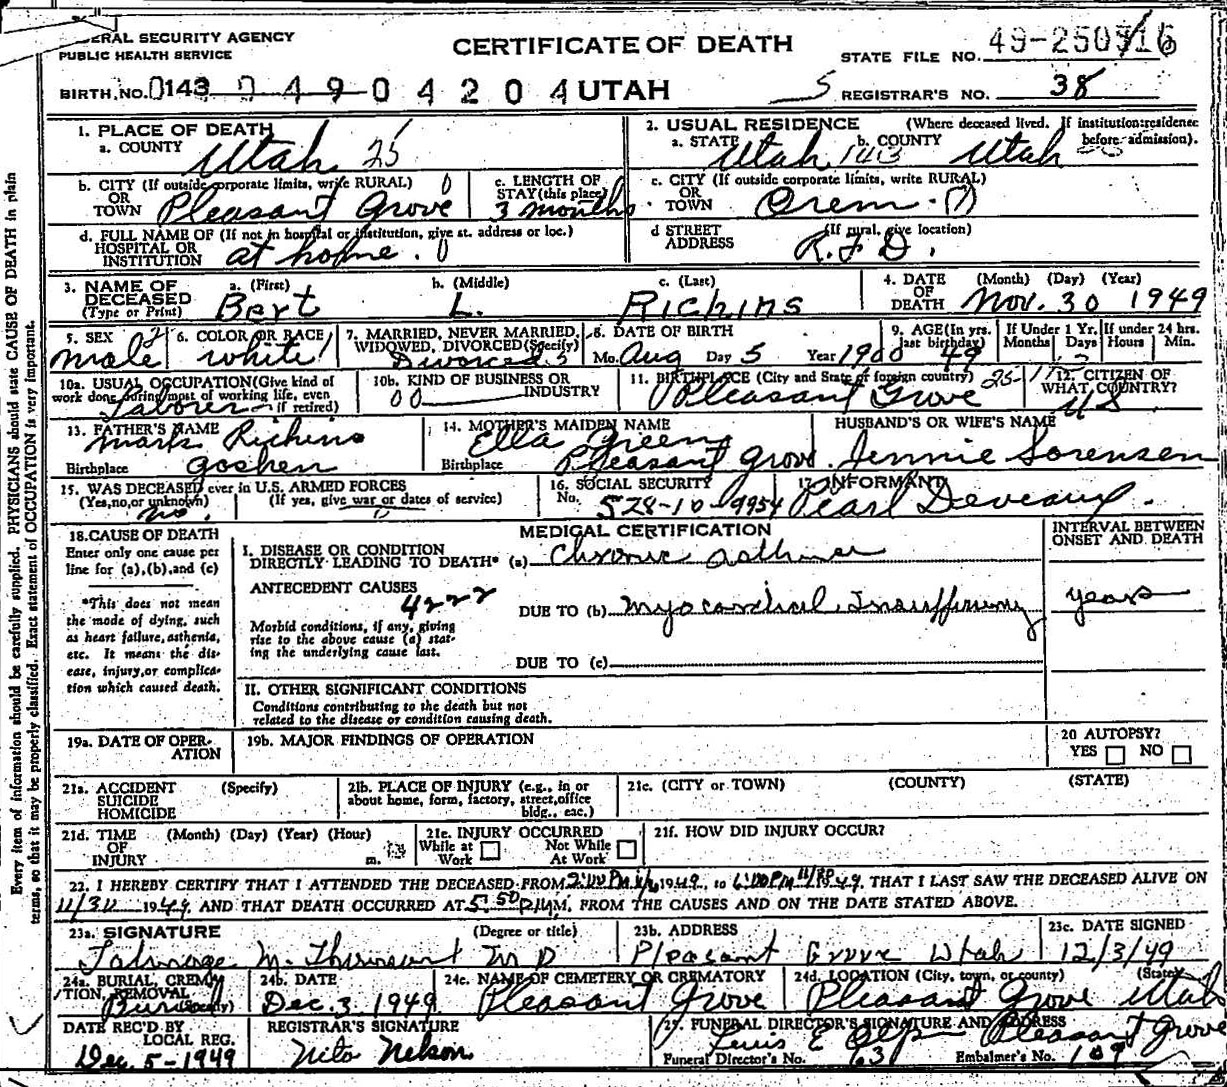 FEDERAL SECURITY AGENCY
PUBLIC HEALTH SERVICE
CERTIFICATE OF DEATH
STATE FILE NO. 49-250516
BIRTH NO. 0143 0490420 4 UTAH
5 REGISTRAR'S NO. 38
1. PLACE OF DEATH
a. COUNTY Utah 25
2. USUAL RESIDENCE (Where deceased lived. If institution: residence before admission).
a. STATE Utah b. COUNTY Utah
b. CITY (If outside corporate limits, write RURAL)
OR
TOWN Pleasant Grove
c. LENGTH OF
STAY (this place)
3 months
c. CITY (If outside corporate limits, write RURAL)
OR
TOWN Orem
d. FULL NAME OF (If not in hospital or institution, give st. address or loc.)
HOSPITAL OR
INSTITUTION at home.
d STREET (If rural, give location)
ADDRESS R.F.D.
3. NAME OF
DECEASED
(Type or Print)
a. (First) Bert
b. (Middle) L.
c. (Last) Richins
4. DATE (Month) (Day) (Year)
OF
DEATH Nov. 30 1949
5. SEX
male
6. COLOR OR RACE
white
7. MARRIED, NEVER MARRIED,
WIDOWED, DIVORCED (Specify)
Divorced
8. DATE OF BIRTH
Mo. Aug Day 5 Year 1900
9. AGE (In yrs.
last birthday) 49
If Under 1 Yr.
Months Days
If under 24 hrs.
Hours Min.
10a. USUAL OCCUPATION (Give kind of
work done during most of working life, even
if retired)
Laborer
10b. KIND OF BUSINESS OR
INDUSTRY
11. BIRTHPLACE (City and State or foreign country)
Pleasant Grove
12. CITIZEN OF
WHAT COUNTRY?
U.S.
13. FATHER'S NAME
Mark Richins
Birthplace Goshen
14. MOTHER'S MAIDEN NAME
Ella Green
Birthplace Pleasant Grove.
HUSBAND'S OR WIFE'S NAME
Jennie Sorensen
15. WAS DECEASED ever in U.S. ARMED FORCES
(Yes, no, or unknown) (If yes, give war or dates of service)
no.
16. SOCIAL SECURITY
No. 528-10-9954
17. INFORMANT
Pearl
18. CAUSE OF DEATH
Enter only one cause per
line for (a), (b), and (c)
*This does not mean
the mode of dying, such
as heart failure, asthenia,
etc. It means the dis-
ease, injury, or complica-
tion which caused death.
MEDICAL CERTIFICATION
INTERVAL BETWEEN
ONSET AND DEATH
I. DISEASE OR CONDITION
DIRECTLY LEADING TO DEATH* (a) Chronic asthma
ANTECEDENT CAUSES
4222
DUE TO (b) myocardial Insufficiency years
Morbid conditions, if any, giving
rise to the above cause (a) stat-
ing the underlying cause last.
DUE TO (c)
II. OTHER SIGNIFICANT CONDITIONS
Conditions contributing to the death but not
related to the disease or condition causing death.
19a. DATE OF OPER-
ATION
19b. MAJOR FINDINGS OF OPERATION
20 AUTOPSY?
YES NO
21a. ACCIDENT (Specify)
SUICIDE
HOMICIDE
21b. PLACE OF INJURY (e.g., in or
about home, form, factory, street, office
bldg., eac.)
21c. (CITY or TOWN) (COUNTY) (STATE)
21d. TIME (Month) (Day) (Year) (Hour)
OF
INJURY m.
21e. INJURY OCCURRED
While at Work Not While At Work
21f. HOW DID INJURY OCCUR?
22. I HEREBY CERTIFY THAT I ATTENDED THE DECEASED FROM 1949, to 6:00 PM 11/30 1949, THAT I LAST SAW THE DECEASED ALIVE ON
11/30 1949 AND THAT DEATH OCCURRED AT 5:50 P.M., FROM THE CAUSES AND ON THE DATE STATED ABOVE.
23a. SIGNATURE (Degree or title)
M. MD
23b. ADDRESS
Pleasant Grove Utah
23c. DATE SIGNED
12/3/49
24a. BURIAL, CREMA-
TION, REMOVAL
(Specify)
Burial
24b. DATE
Dec. 3. 1949
24c. NAME OF CEMETERY OR CREMATORY
Pleasant Grove
24d. LOCATION (City, town, or county) (State)
Pleasant Grove Utah
DATE REC'D BY
LOCAL REG.
Dec. 5-1949
REGISTRAR'S SIGNATURE
Nelson
25. FUNERAL DIRECTOR'S SIGNATURE AND ADDRESS
E Pleasant Grove
Funeral Director's No. 63 Embalmer's No. 109
Every item of information should be carefully supplied. PHYSICIANS should state CAUSE OF DEATH in plain
terms, so that it may be properly classified. Exact statement of OCCUPATION is very important.